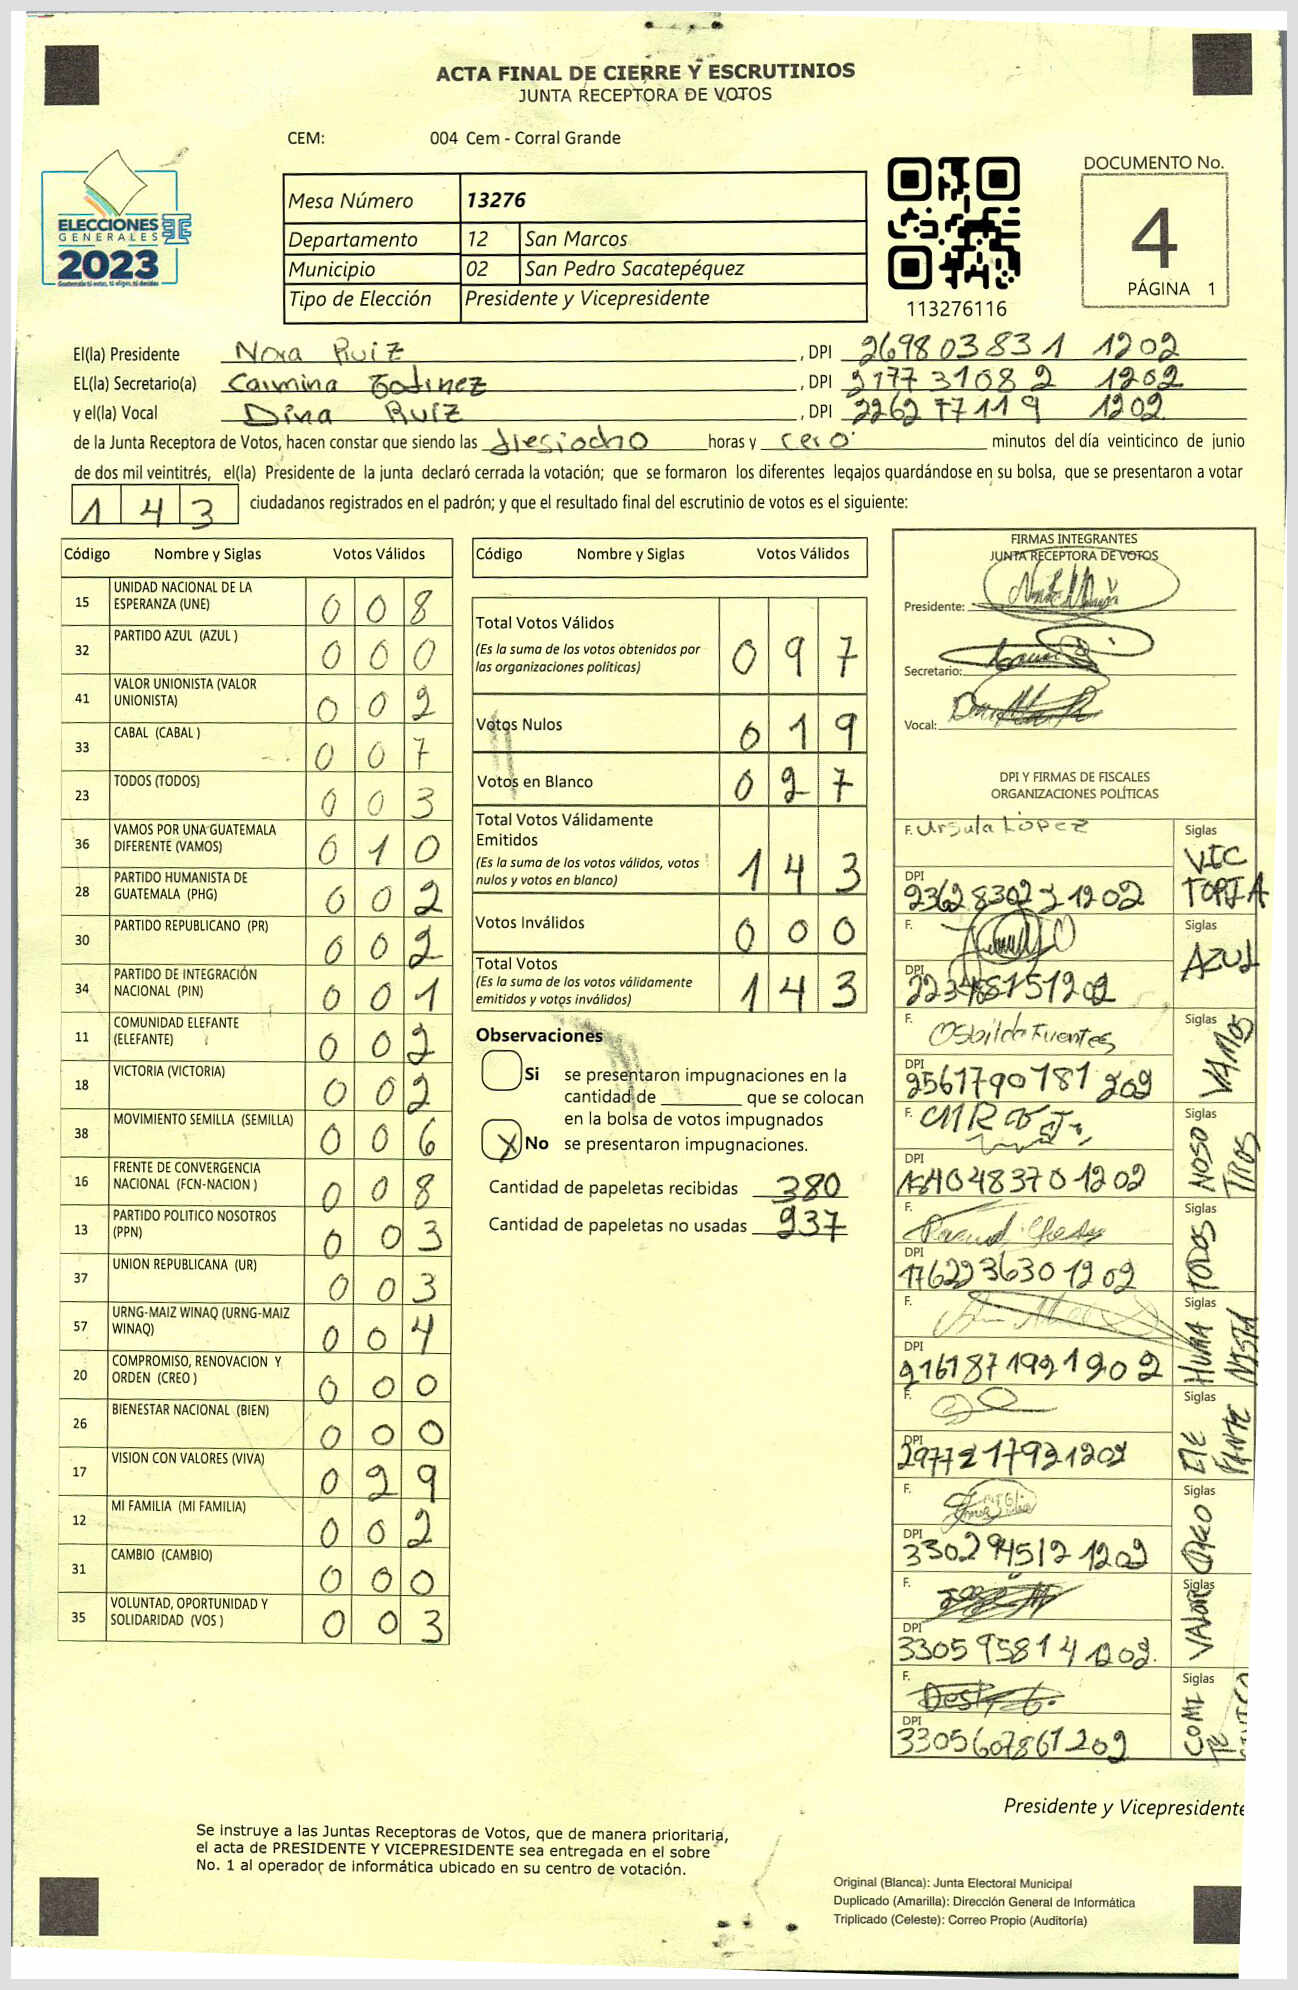 ACTA FINAL DE CIERRE Y ESCRUTINIOS
JUNTA RECEPTORA DE VOTOS
CEM: 004 Cem - Corral Grande
ELECCIONES
GENERALES
2023
Guatemala tú votas, tú eliges, tú decides
Mesa Número 13276
Departamento 12 San Marcos
Municipio 02 San Pedro Sacatepéquez
Tipo de Elección Presidente y Vicepresidente
113276116
DOCUMENTO No.
4
PÁGINA 1
El(la) Presidente Nora Ruiz , DPI 269803831 1202
EL(la) Secretario(a) Carmina Godinez , DPI 217731082 1202
y el(la) Vocal Dina Ruiz , DPI 226277119 1202
de la Junta Receptora de Votos, hacen constar que siendo las diesiocho horas y cero minutos del día veinticinco de junio
de dos mil veintitrés, el(la) Presidente de la junta declaró cerrada la votación; que se formaron los diferentes legajos quardándose en su bolsa, que se presentaron a votar
143 ciudadanos registrados en el padrón; y que el resultado final del escrutinio de votos es el siguiente:
Código Nombre y Siglas Votos Válidos
15 UNIDAD NACIONAL DE LA ESPERANZA (UNE) 008
32 PARTIDO AZUL (AZUL ) 000
41 VALOR UNIONISTA (VALOR UNIONISTA) 002
33 CABAL (CABAL ) 007
23 TODOS (TODOS) 003
36 VAMOS POR UNA GUATEMALA DIFERENTE (VAMOS) 010
28 PARTIDO HUMANISTA DE GUATEMALA (PHG) 002
30 PARTIDO REPUBLICANO (PR) 002
34 PARTIDO DE INTEGRACIÓN NACIONAL (PIN) 001
11 COMUNIDAD ELEFANTE (ELEFANTE) 002
18 VICTORIA (VICTORIA) 002
38 MOVIMIENTO SEMILLA (SEMILLA) 006
16 FRENTE DE CONVERGENCIA NACIONAL (FCN-NACION ) 008
13 PARTIDO POLITICO NOSOTROS (PPN) 003
37 UNION REPUBLICANA (UR) 003
57 URNG-MAIZ WINAQ (URNG-MAIZ WINAQ) 004
20 COMPROMISO, RENOVACION Y ORDEN (CREO ) 000
26 BIENESTAR NACIONAL (BIEN) 000
17 VISION CON VALORES (VIVA) 029
12 MI FAMILIA (MI FAMILIA) 002
31 CAMBIO (CAMBIO) 000
35 VOLUNTAD, OPORTUNIDAD Y SOLIDARIDAD (VOS ) 003
Código Nombre y Siglas Votos Válidos
Total Votos Válidos 097
(Es la suma de los votos obtenidos por
las organizaciones políticas)
Votos Nulos 019
Votos en Blanco 027
Total Votos Válidamente
Emitidos 143
(Es la suma de los votos válidos, votos
nulos y votos en blanco)
Votos Inválidos 000
Total Votos 143
(Es la suma de los votos válidamente
emitidos y votos inválidos)
Observaciones
Si se presentaron impugnaciones en la
cantidad de ________ que se colocan
en la bolsa de votos impugnados
X No se presentaron impugnaciones.
Cantidad de papeletas recibidas 380
Cantidad de papeletas no usadas 237
FIRMAS INTEGRANTES
JUNTA RECEPTORA DE VOTOS
Presidente:
Secretario:
Vocal:
DPI Y FIRMAS DE FISCALES
ORGANIZACIONES POLÍTICAS
F. Ursula López Siglas VICTORIA
DPI
F. Siglas AZUL
DPI
F. Osbildo Fuentes Siglas VAMOS
DPI 2561790181 202
F. Siglas NOSOTROS
DPI
F. Siglas TODOS
DPI 176223630 1202
F. Siglas HUMANISTA
DPI 216187192 1202
F. Siglas ELEFANTE
DPI 297721792 1202
F. Siglas CREO
DPI 330294512 1202
F. Siglas VALOR
DPI 330595814 1202.
F. Siglas COMITE
DPI 330560786 1202
Presidente y Vicepresidente
Se instruye a las Juntas Receptoras de Votos, que de manera prioritaria,
el acta de PRESIDENTE Y VICEPRESIDENTE sea entregada en el sobre
No. 1 al operador de informática ubicado en su centro de votación.
Original (Blanca): Junta Electoral Municipal
Duplicado (Amarilla): Dirección General de Informática
Triplicado (Celeste): Correo Propio (Auditoría)